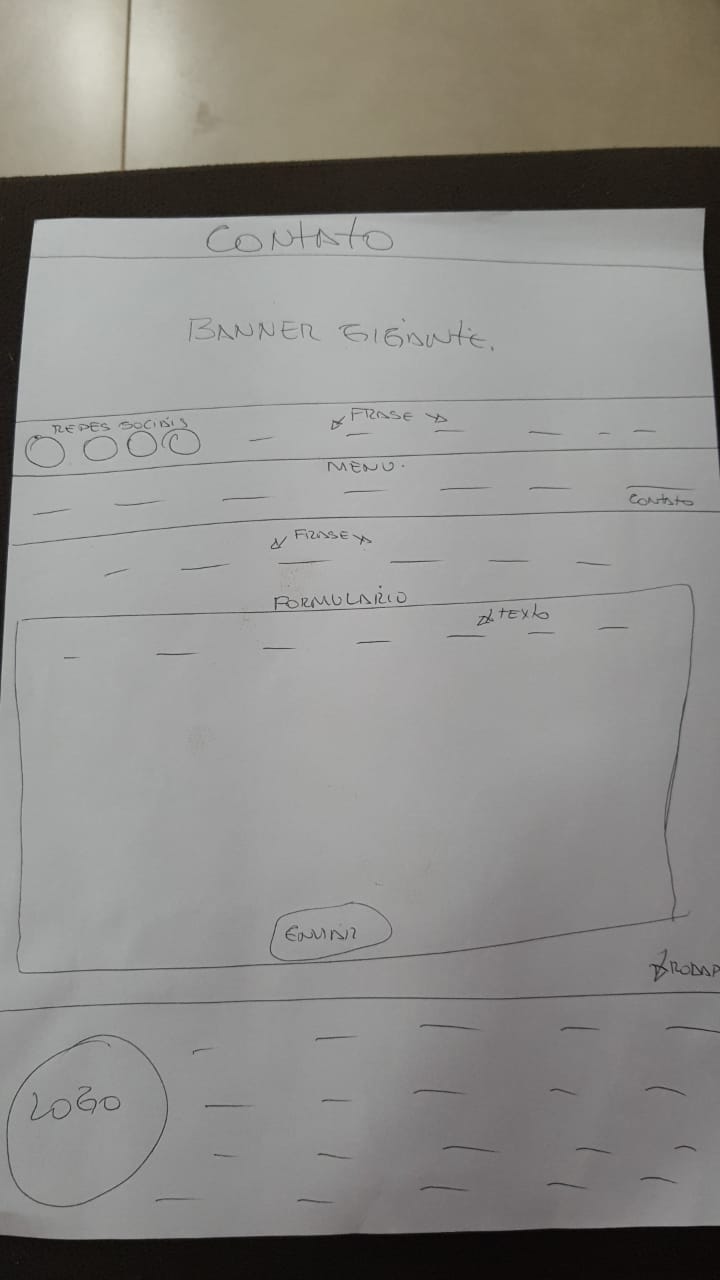 CONTATO
BANNER GIGANTE.
REDES SOCIAIS
FRASE
MENU.
CONTATO
FRASE
FORMULARIO
TEXTO
ENVIAR
RODAP
LOGO